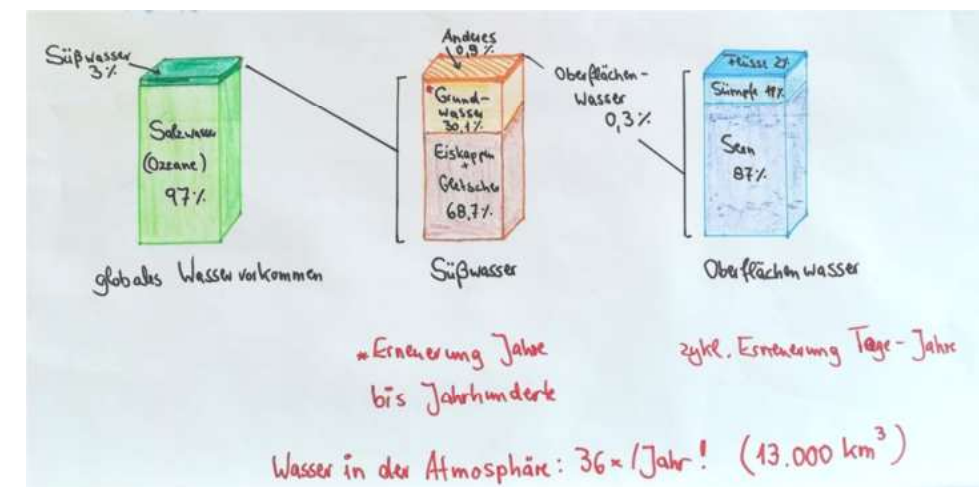 Süßwasser
3%
Salzwasser
(Ozeane)
97%
globales Wasservorkommen
Anderes
0,9%
*Grund-
wasser
30,1%
Eiskappen
+
Gletscher
68,7%
Süßwasser
Oberflächen-
Wasser
0,3%
Flüsse 2%
Sümpfe 11%
Seen
87%
Oberflächenwasser
*Erneuerung Jahre
bis Jahrhunderte
zykl. Erneuerung Tage - Jahre
Wasser in der Atmosphäre: 36x/Jahr! (13.000 km³)